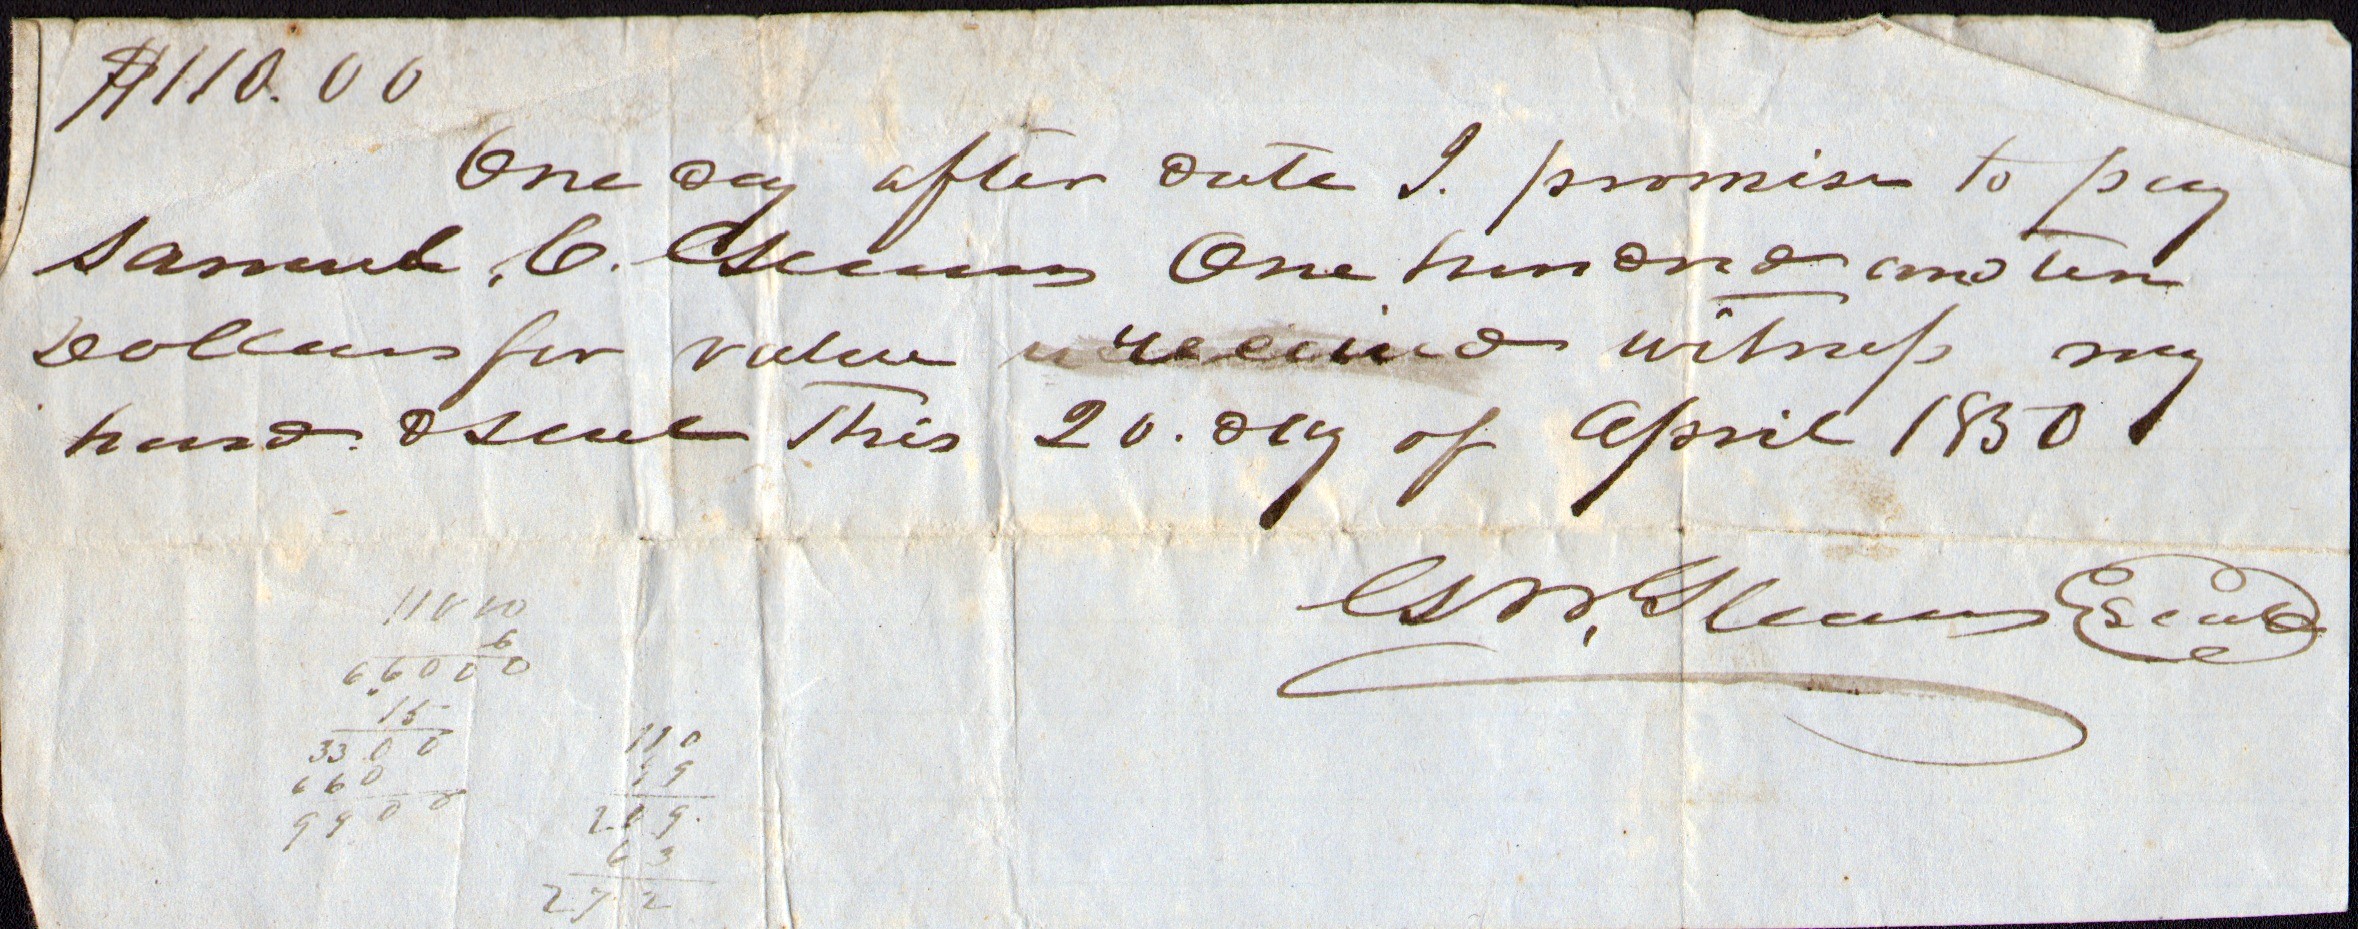 $110.00
One day after date I. promise to pay
Samuel, C. One hundred and ten
Dollars for value received witness my
hand & seal This 20. day of April 1850
Seal
110 00
6
6 6000
15
33 00
660
99 00
110
99
209.
63
272